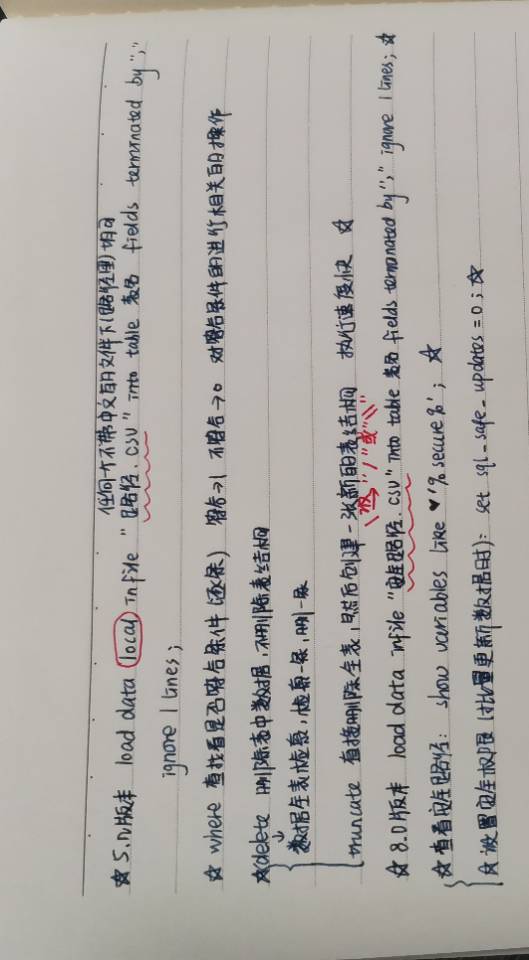 任何一个不带中文的文件下(路径里)均可
☆ 5.0版本 load data local infile "路径.csv" into table 表名 fields terminated by ","
ignore 1 lines;
☆ where 查找看是否符合条件(逐条) 符合→1 不符合→0 对符合条件的进行相关的操作
☆ delete 删除表中数据,不删除表结构
↓
数据全表检索,检索一条,删一条
truncate 直接删除全表,然后创建一张新的表结构 执行速度快 ☆
"/"或"\\"
☆ 8.0版本 load data infile "安全路径.csv" into table 表名 fields terminated by "," ignore 1 lines; ☆
☆ 查看安全路径: show variables like '%secure%'; ☆
☆ 设置安全权限(批量更新数据时): set sql_safe_updates=0; ☆